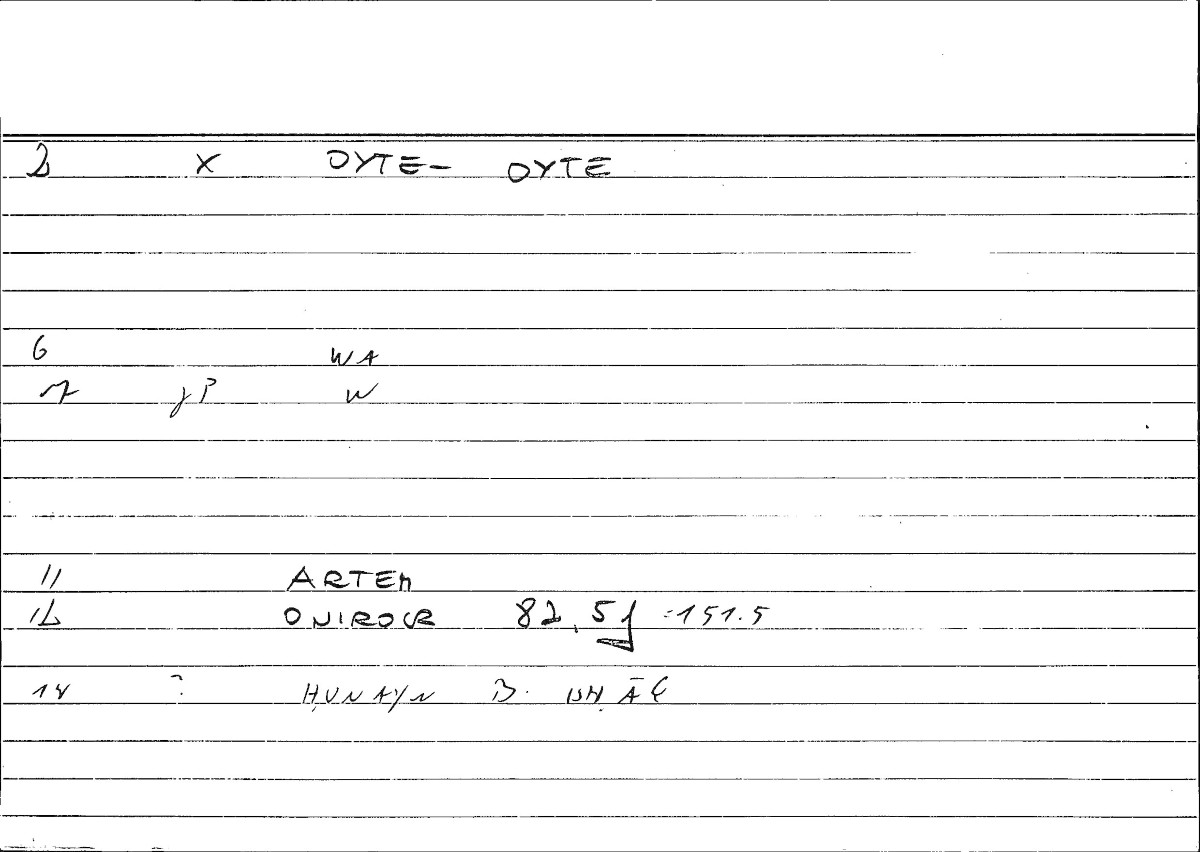 2 X OYTE- OYTE
6 WA
7 jP W
11 ARTEM
12 ONIROCR 82,5f =151.5
14 ? ḤUNAYN B. ISḤĀḲ